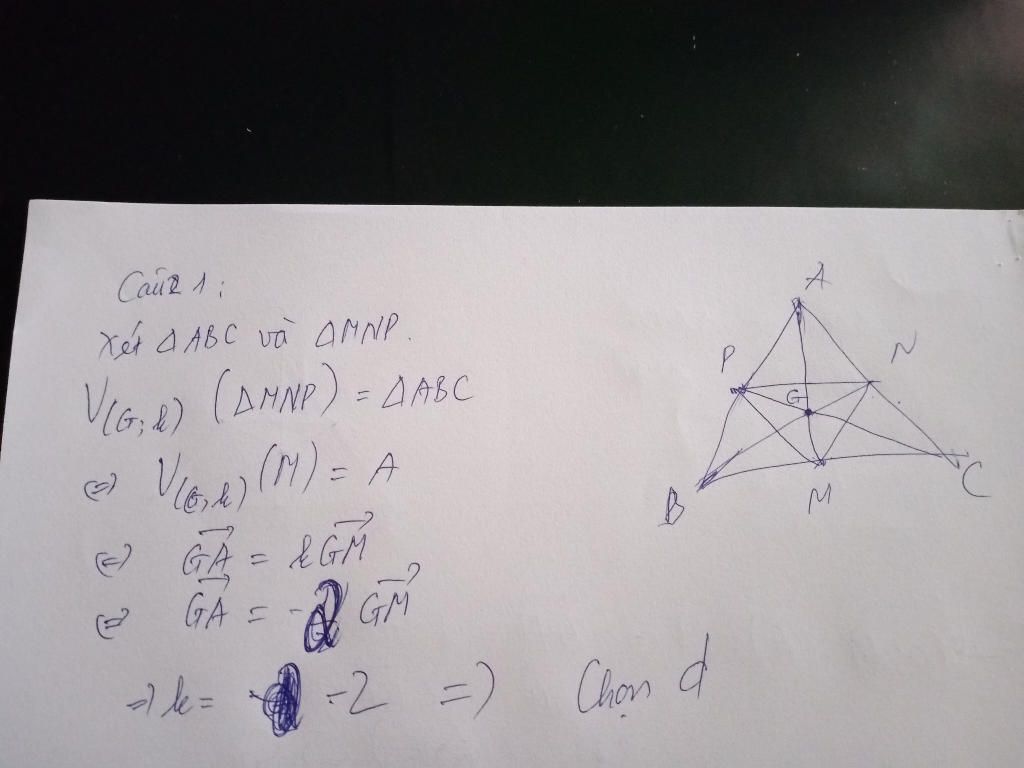 Câu 1:
Xét ΔABC và ΔMNP.
V(G;k) (ΔMNP) = ΔABC
⇔ V(G;k) (M) = A
⇔ GA⃗ = k GM⃗
⇔ GA⃗ = -2 GM⃗
⇒ k = -2 ⇒ Chọn d
A
P N
G
B M C